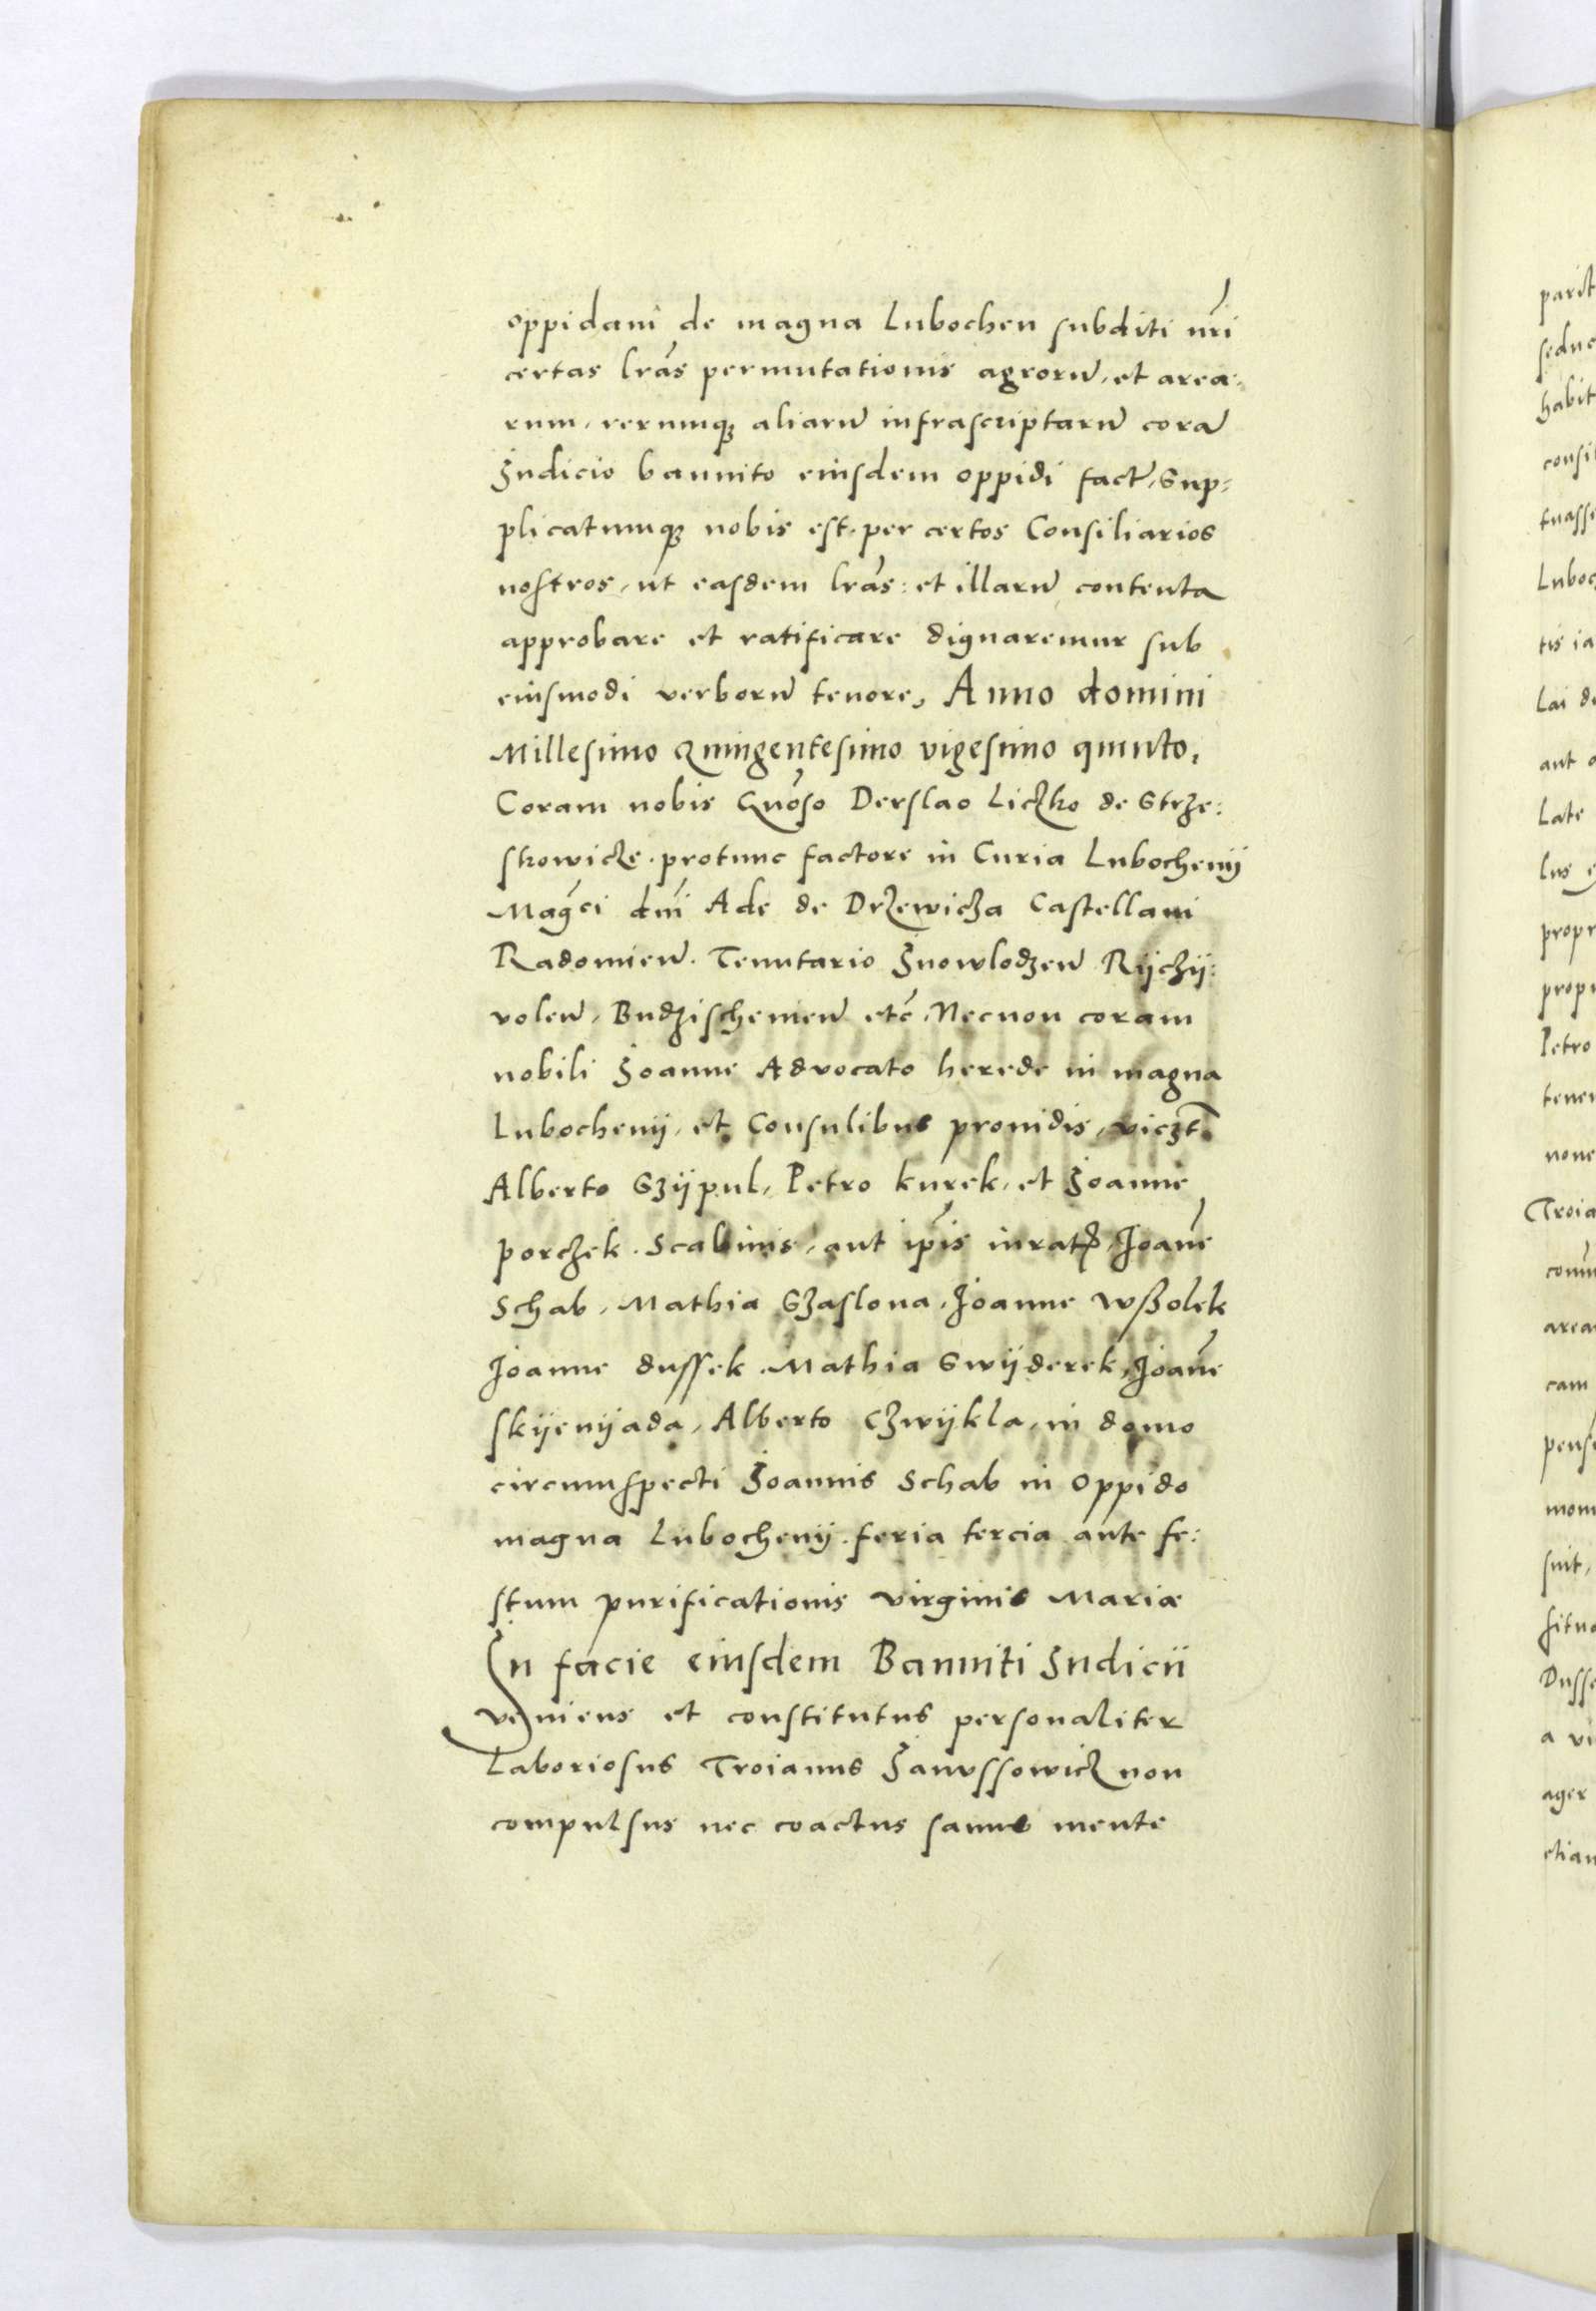 oppidani de magna Lubochen subditi nr̃i
certas lr̃as permutationis agrorũ, et area:
rum, rerumq3 aliarũ infrascriptarũ corã
Judicio bannito eiusdem oppidi fact̃, Sup:
plicatumq3 nobis est, per certos Consiliarios
nostros, ut easdem lr̃as: et illarũ contenta
approbare et ratificare dignaremur sub
eiusmodi verborũ tenore, Anno domini
Millesimo Quingentesimo vigesimo quinto,
Coram nobis Gnõso Derslao Liczko de Strze:
skowicze. protunc factore in Curia Lubochenij
Magc̃i dnĩ Ade de Drzewicza Castellani
Radomien̄. Tenutario Jnowlodzen̄ Rijczij:
volen̄, Budzischenien̄ etc̃, Necnon coram
nobili Joanne Advocato herede in magna
Lubochenij, et Consulibus prouidis, viczt̃
Alberto Szijpul, Petro kurek, et Joanne
porczek. Scabinis, aut ip̃is iurat̃, Joañe
Schab, Mathia Szaslona, Joanne Wßolek
Joanne dussek. Mathia Swijderek, Joañe
skijenijada, Alberto Czwijkla, in domo
circumspecti Joannis Schab in Oppido
magna Lubochenij. feria tercia ante fe:
stum purificationis virginis Mariæ
In facie eiusdem Banniti Judicii
veniens et constitutus personaliter
Laboriosus Troianus Janussowicz non
compulsus nec coactus sanus mente